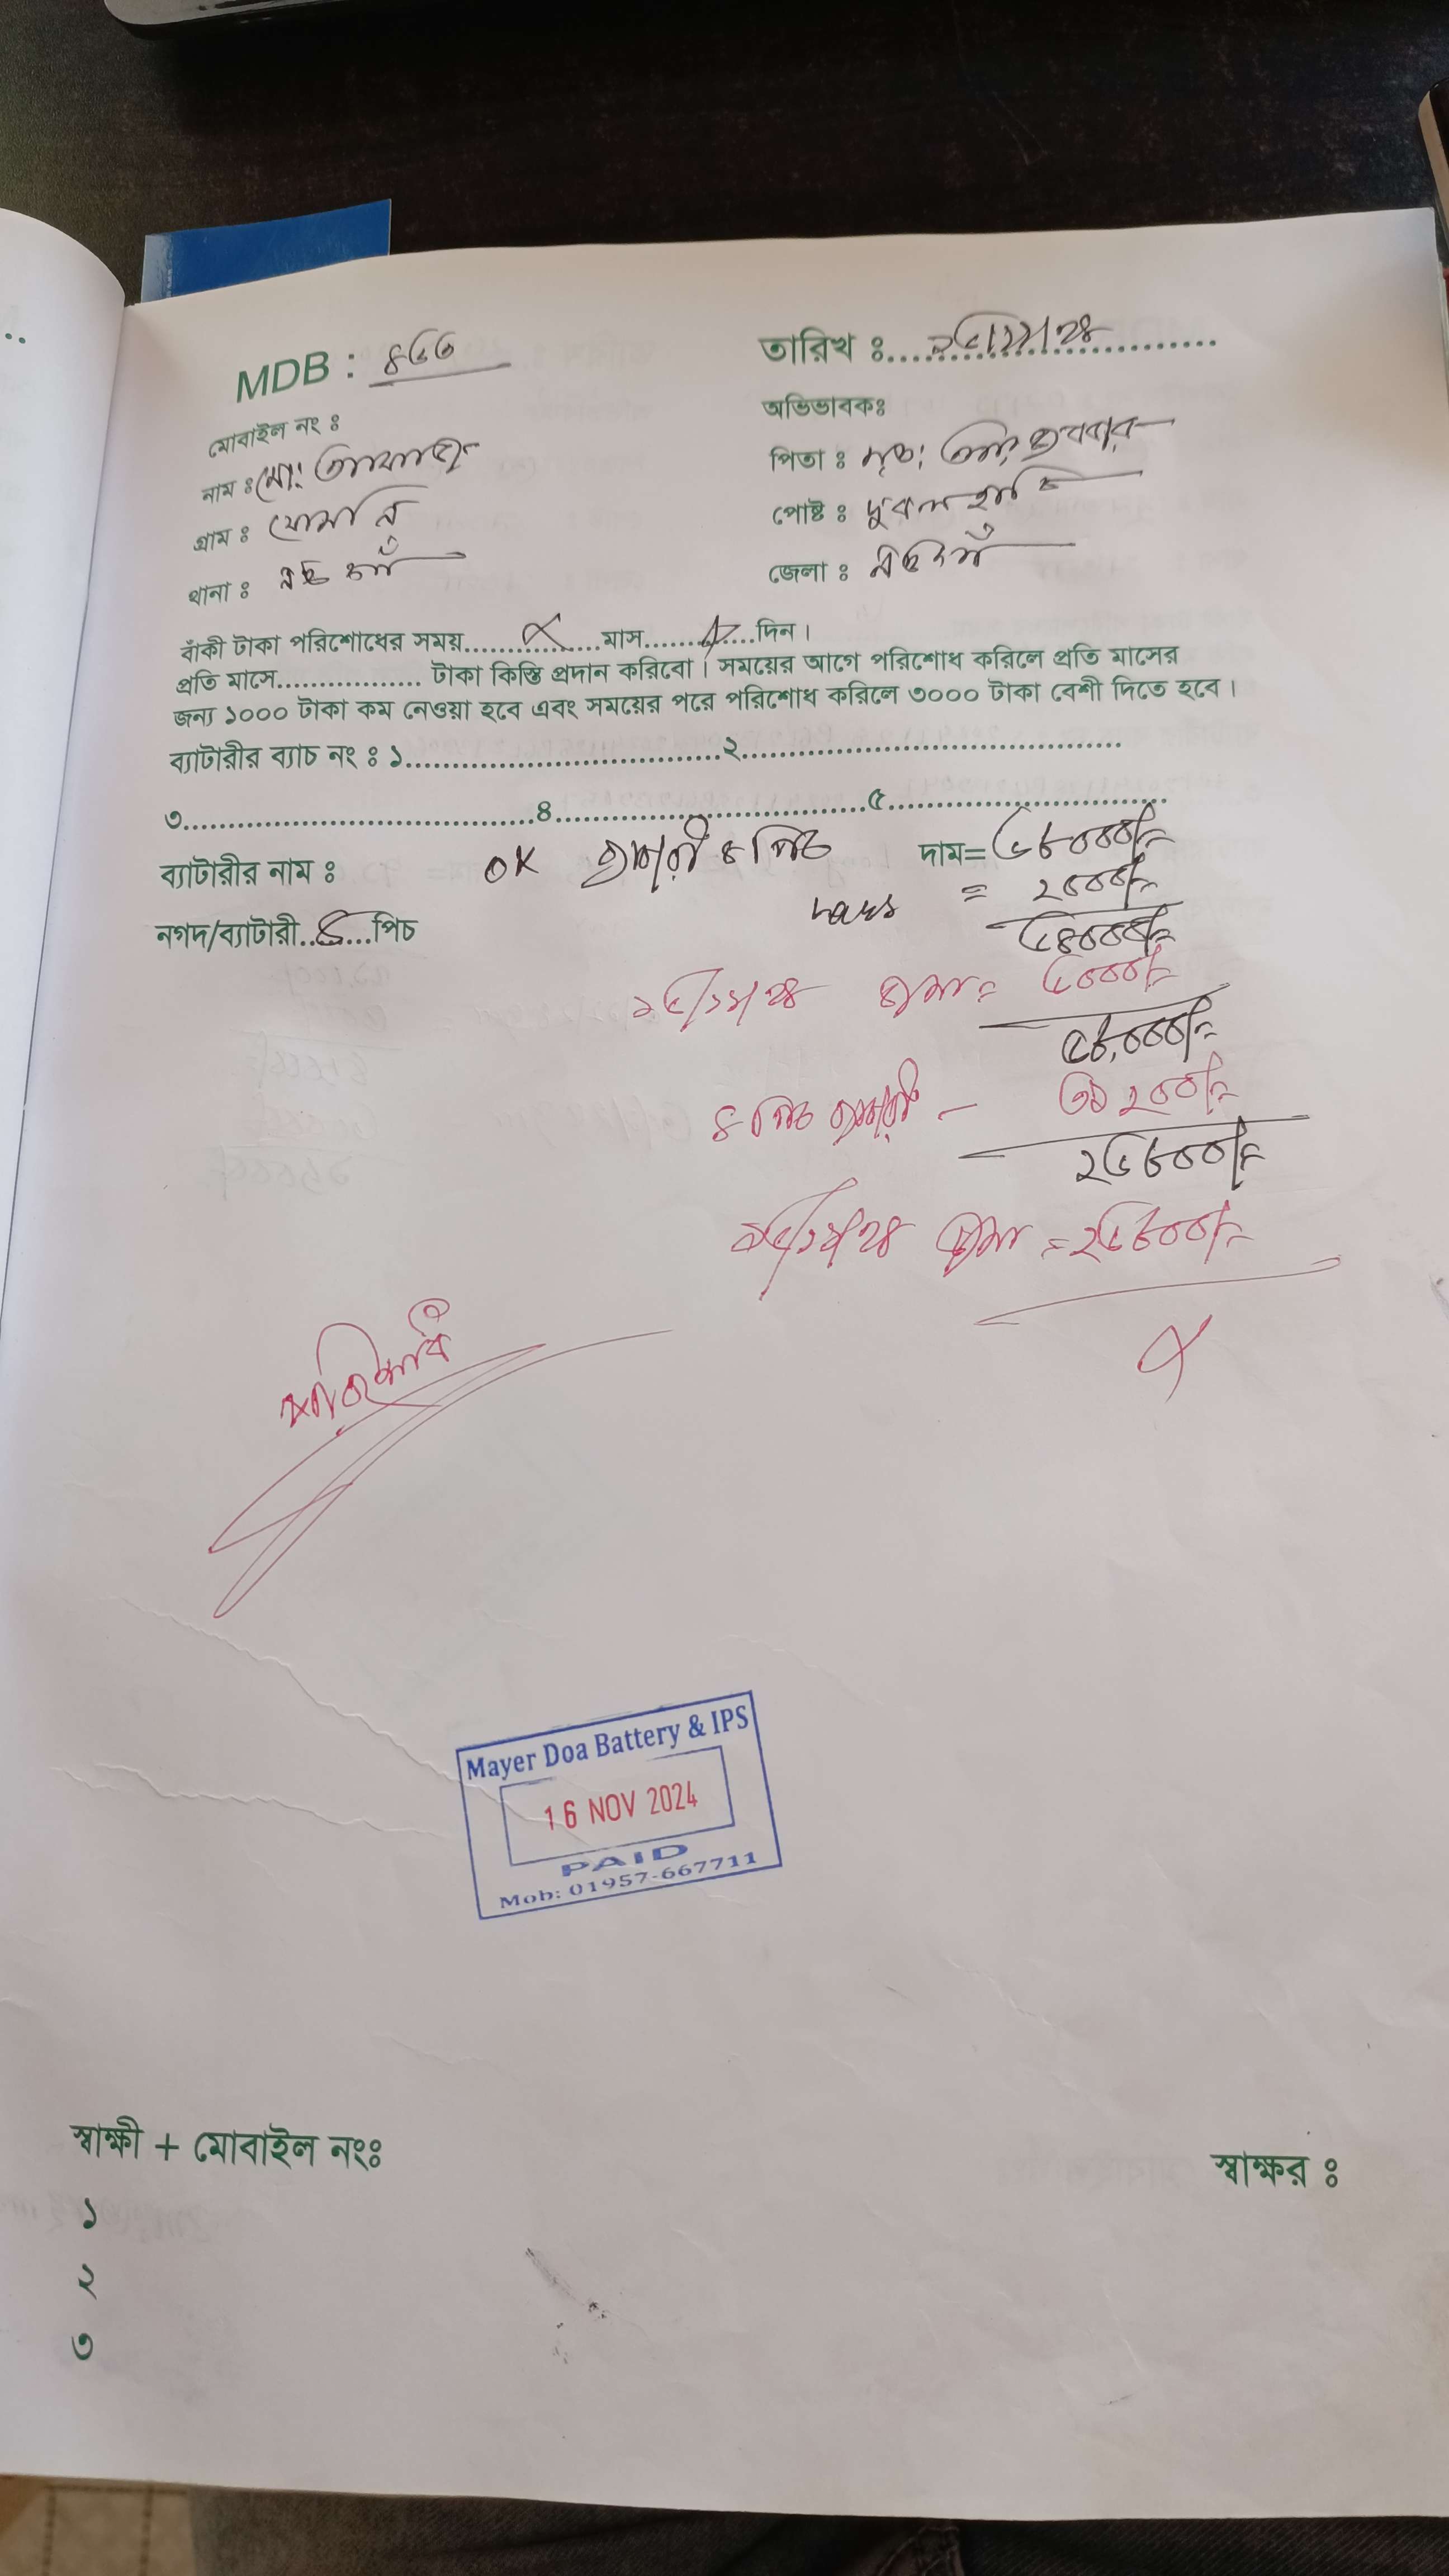 MDB : ৪৬৩
তারিখ ঃ ১৬/১১/২৪
মোবাইল নং ঃ
অভিভাবকঃ
নাম ঃ মো:
পিতা ঃ মৃত: জব্বার
গ্রাম ঃ
পোষ্ট ঃ দুবলহাটি
থানা ঃ নওগাঁ
জেলা ঃ নওগাঁ
বাঁকী টাকা পরিশোধের সময়..................মাস............দিন।
প্রতি মাসে................. টাকা কিস্তি প্রদান করিবো। সময়ের আগে পরিশোধ করিলে প্রতি মাসের
জন্য ১০০০ টাকা কম নেওয়া হবে এবং সময়ের পরে পরিশোধ করিলে ৩০০০ টাকা বেশী দিতে হবে।
ব্যাটারীর ব্যাচ নং ঃ ১........................................২.............................................
৩..........................................৪.....................................৫...................................
ব্যাটারীর নাম ঃ OK ব্যাটারী ৪ পিচ দাম= ৬৬০০০/=
= ২০০০/=
নগদ/ব্যাটারী.........পিচ
৬৪০০০/=
১৬/১১/২৪ জমা= ৬০০০/=
৫৮,০০০/=
৪ পিচ ব্যাটারী - ৩১২০০/=
২৬৮০০/=
১৬/১১/২৪ জমা = ২৬৮০০/=
Mayer Doa Battery & IPS
16 NOV 2024
PAID
Mob: 01957-667711
স্বাক্ষী + মোবাইল নংঃ
স্বাক্ষর ঃ
১
২
৩